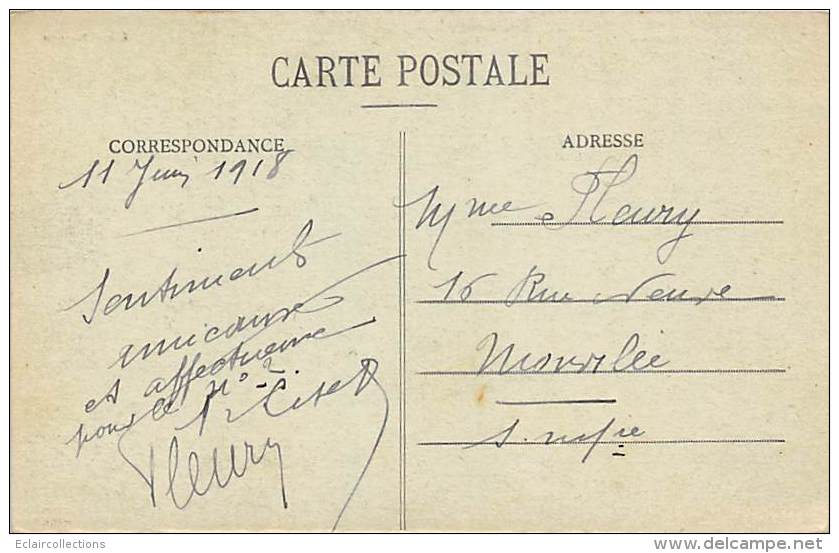 CARTE POSTALE
CORRESPONDANCE
11 Juin 1918
Sentiments
amicaux
et affectueux
pour le N° 2.
Fleury
ADRESSE
Mme Fleury
16 Rue Neuve
S. infre
Eclaircollections
©delcampe.net